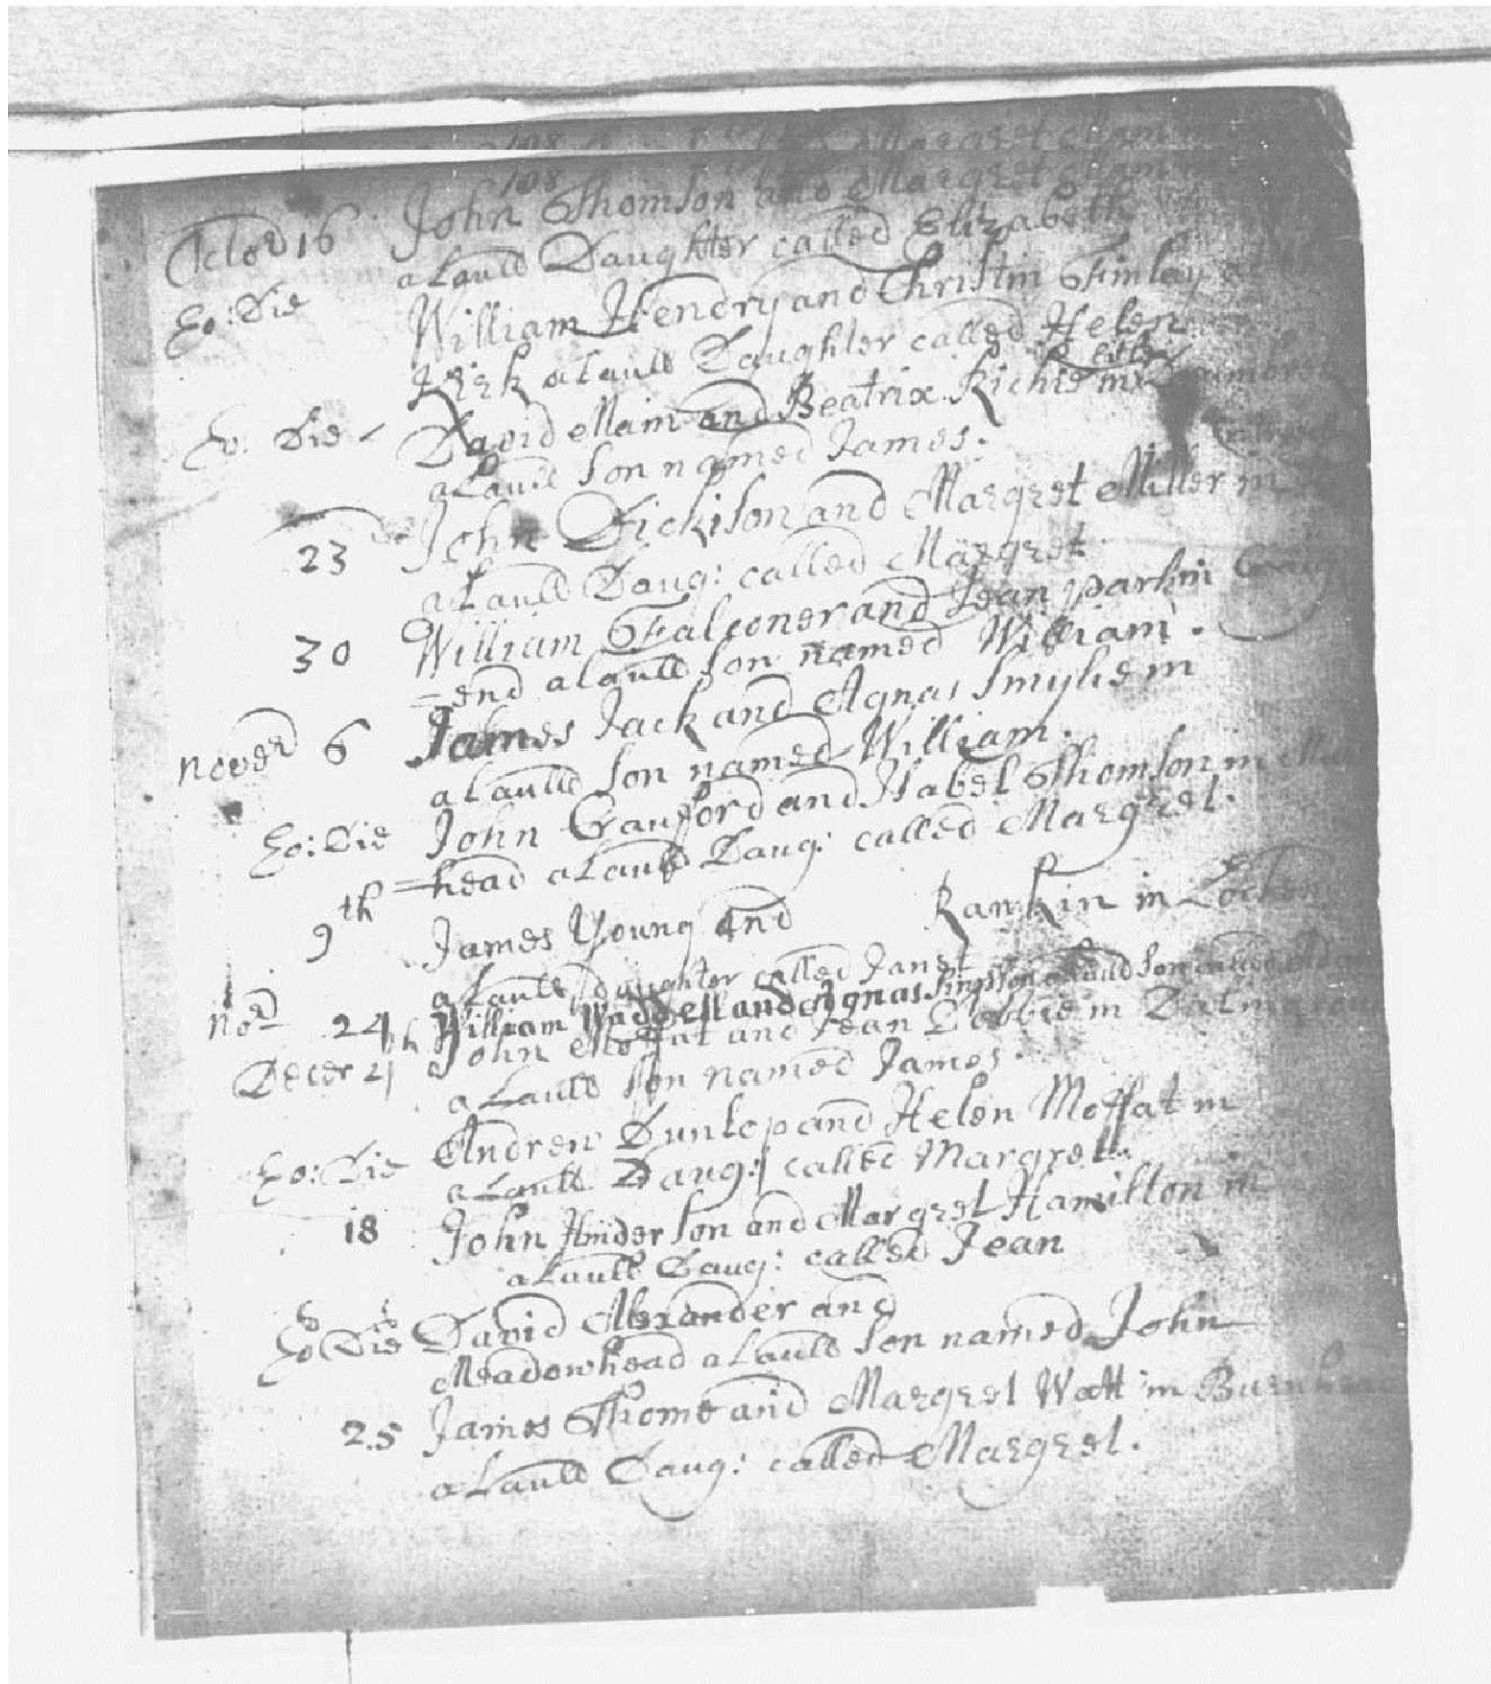 108
Octobr 16 John Thomson and Margret
a Laull Daughter called Elizabeth
Eo: Die William Hendry and Christin Finlay at
Kirk a Laull Daughter called Helen
Eo: Die David Main and Beatrix Richie in Litle
a Laull son named James:
23 John Dickison and Margret Miller in
a Laull Daug: called Margret
30 William Falconer and Jean park in Craig
=end a Laull son named William.
Nover 6 James Jack and Agnas Smylie in
a Laull son named William.
Eo: Die John Craufords and Isabel Thomson in
=head a Laull Daug: called Margret.
9th James Young and Rankin in
a Laull daughter called Janet
Nor 24 William Waddell and Agnas Simpson a Laull son called
Decer 4th John Moffat and Jean Dobbie in
a Laull son named James.
Eo: Die Andrew Dunlop and Helen Moffat in
a Laull Daug: called Margret.
18 John Hinderson and Margret Hamilton in
a Laull Daug: called Jean
Eo Die David Alexander and
Meadowhead a Laull son named John
25 James Thome and Margret Watt in Burnhead
a Laull Daug: called Margret.